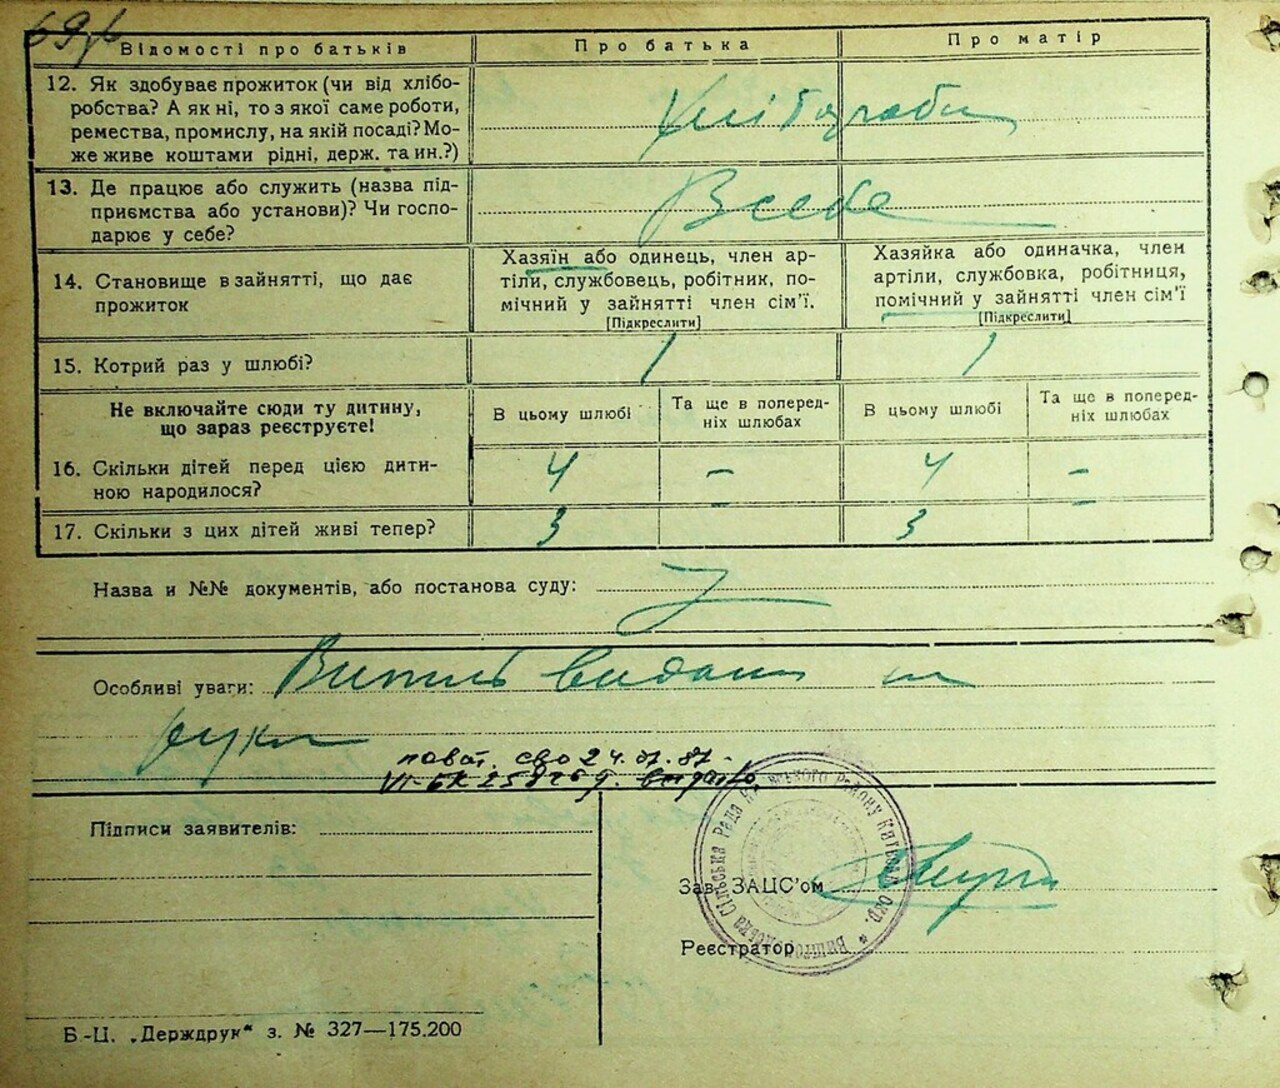 69
Відомості про батьків
Про батька
Про матір
12. Як здобуває прожиток (чи від хлібо-
робства? А як ні, то з якої саме роботи,
ремества, промислу, на якій посаді? Мо-
же живе коштами рідні, держ. та ин.?)
Хлібороби
13. Де працює або служить (назва під-
приємства або установи)? Чи госпо-
дарює у себе?
В себе
14. Становище в зайнятті, що дає
прожиток
Хазяїн або одинець, член ар-
тіли, службовець, робітник, по-
мічний у зайнятті член сім'ї.
[Підкреслити]
Хазяйка або одиначка, член
артіли, службовка, робітниця,
помічний у зайнятті член сім'ї
[Підкреслити]
15. Котрий раз у шлюбі?
1
1
Не включайте сюди ту дитину,
що зараз реєструєте!
В цьому шлюбі
Та ще в поперед-
ніх шлюбах
В цьому шлюбі
Та ще в поперед-
ніх шлюбах
16. Скільки дітей перед цією дити-
ною народилося?
4
–
4
–
17. Скільки з цих дітей живі тепер?
3
–
3
–
Назва и №№ документів, або постанова суду:
Особливі уваги: Витяг видано на
руки
повт. сво 24.07.87-
VI-БК 258926 р. видано
Підписи заявителів:
Зав. ЗАЦС'ом
Реєстратор
сільська Рада району Київськ. окр.
Б.-Ц. „Держдрук“ з. № 327—175.200